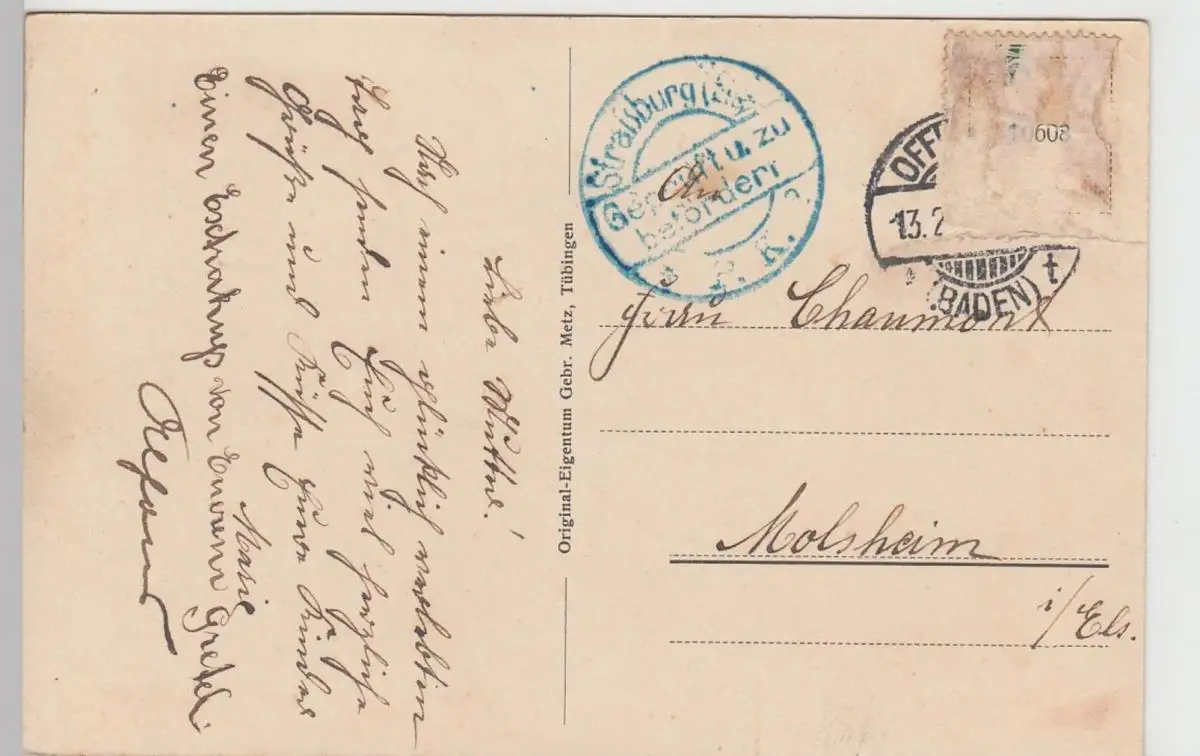 Liebe Mutter!
Nach einem glücklich verlebten
Tag senden Euch viel herzliche
Grüße und Küsse Eure Kinder
Marie
Einen Extrakuss von Eurem Gretel
Alfons
Original-Eigentum Gebr. Metz, Tübingen
Straßburg (Els)
Geprüft u. zu
befördern
P. K.
OFF
13.2
(BADEN) t
608
An
Herrn Chaumont
Molsheim
i/Els.